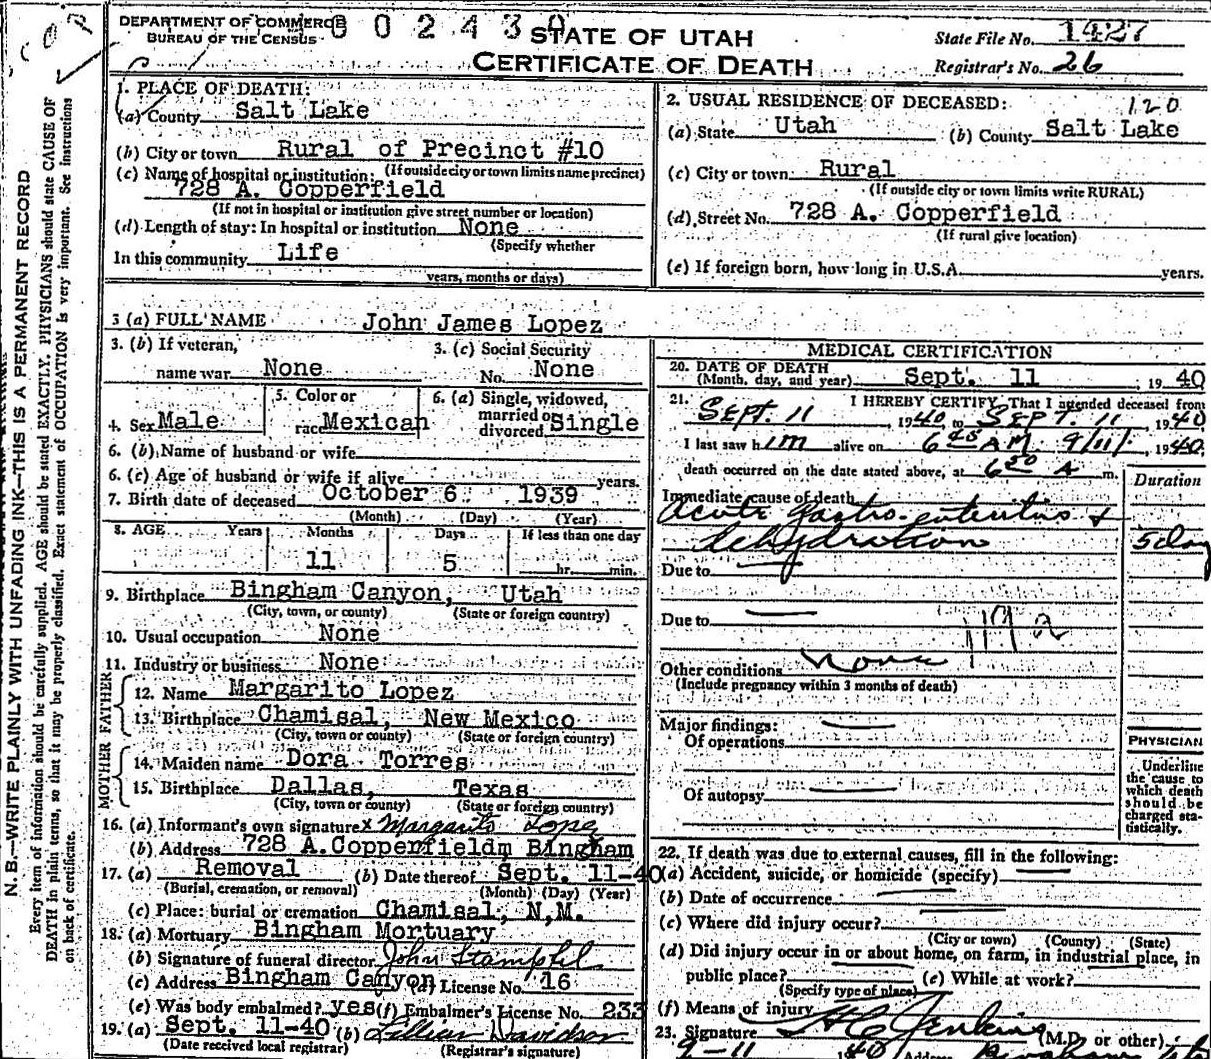 DEPARTMENT OF COMMERCE
BUREAU OF THE CENSUS
STATE OF UTAH
CERTIFICATE OF DEATH
State File No. 1427
Registrar's No. 26
1. PLACE OF DEATH:
(a) County Salt Lake
(b) City or town Rural of Precinct #10
(If outside city or town limits name precinct)
(c) Name of hospital or institution:
728 A. Copperfield
(If not in hospital or institution give street number or location)
(d) Length of stay: In hospital or institution None
(Specify whether
In this community Life
years, months or days)
2. USUAL RESIDENCE OF DECEASED: 120
(a) State Utah (b) County Salt Lake
(c) City or town Rural
(If outside city or town limits write RURAL)
(d) Street No. 728 A. Copperfield
(If rural give location)
(e) If foreign born, how long in U.S.A. years.
3 (a) FULL NAME John James Lopez
3. (b) If veteran, name war None
3. (c) Social Security No. None
4. Sex Male
5. Color or race Mexican
6. (a) Single, widowed, married or divorced Single
6. (b) Name of husband or wife
6. (c) Age of husband or wife if alive years.
7. Birth date of deceased October 6 1939
(Month) (Day) (Year)
8. AGE Years Months Days If less than one day
11 5 hr. min.
9. Birthplace Bingham Canyon, Utah
(City, town, or county) (State or foreign country)
10. Usual occupation None
11. Industry or business None
FATHER
12. Name Margarito Lopez
13. Birthplace Chamisal, New Mexico
(City, town or county) (State or foreign country)
MOTHER
14. Maiden name Dora Torres
15. Birthplace Dallas, Texas
(City, town or county) (State or foreign country)
16. (a) Informant's own signature x Margarito Lopez
(b) Address 728 A.Copperfieldm Bingham
17. (a) Removal (b) Date thereof Sept. 11-40
(Burial, cremation, or removal) (Month) (Day) (Year)
(c) Place: burial or cremation Chamisal, N.M.
18. (a) Mortuary Bingham Mortuary
(b) Signature of funeral director John Stampfel
(c) Address Bingham Canyon (d) License No. 16
(e) Was body embalmed? yes (f) Embalmer's License No. 233
19. (a) Sept. 11-40 (b) Lillian Davidson
(Date received local registrar) (Registrar's signature)
MEDICAL CERTIFICATION
20. DATE OF DEATH
(Month, day, and year) Sept. 11, 1940
21. I HEREBY CERTIFY, That I attended deceased from
Sept. 11 1940, to Sept. 11, 1940
I last saw him alive on 6 45 AM 9/11/, 1940,
death occurred on the date stated above, at 6 50 A m.
Duration
Immediate cause of death
Acute gastro-enteritis &
dehydration 5 day
Due to
Due to
Other conditions none
(Include pregnancy within 3 months of death)
Major findings:
Of operations
Of autopsy
PHYSICIAN
Underline
the cause to
which death
should be
charged sta-
tistically.
22. If death was due to external causes, fill in the following:
(a) Accident, suicide, or homicide (specify)
(b) Date of occurrence
(c) Where did injury occur?
(City or town) (County) (State)
(d) Did injury occur in or about home, on farm, in industrial place, in
public place? (e) While at work?
(Specify type of place)
(f) Means of injury
23. Signature H C Jenkins (M.D. or other)
9-11 1940 Address
N.B.—WRITE PLAINLY WITH UNFADING INK—THIS IS A PERMANENT RECORD
Every item of information should be carefully supplied. AGE should be stated EXACTLY. PHYSICIANS should state CAUSE OF
DEATH in plain terms, so that it may be properly classified. Exact statement of OCCUPATION is very important. See instructions
on back of certificate.